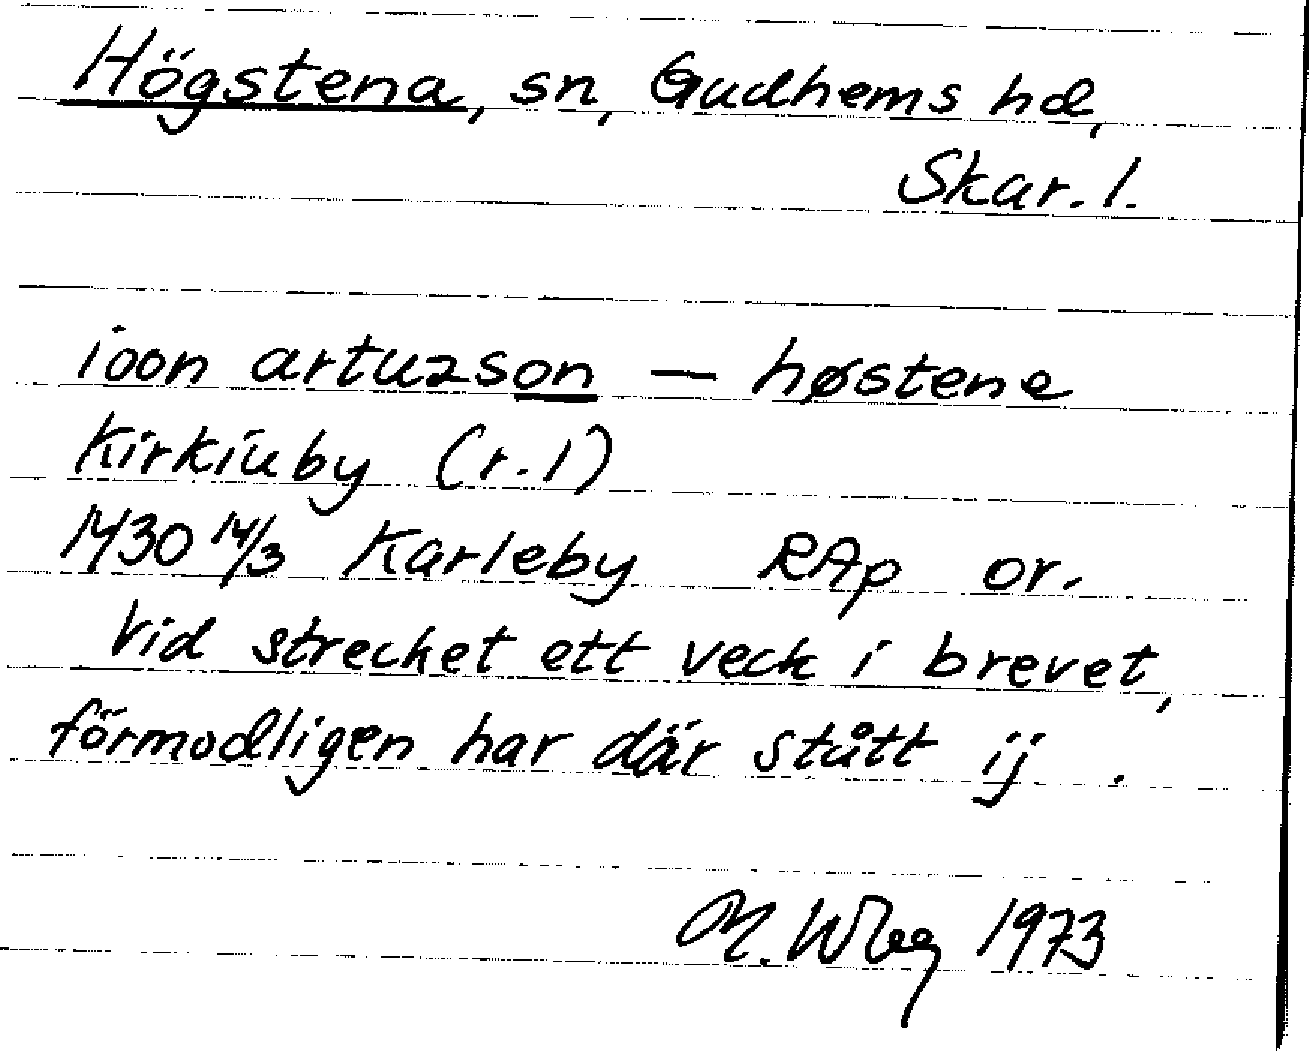 Högstena, sn, Gudhems hd,
Skar. l.
ioon artuzson — høstene
Kirkiuby (r. 1)
1430 14/3 Karleby RAp or.
Vid strecket ett veck i brevet,
förmodligen har där stått ij .
1973